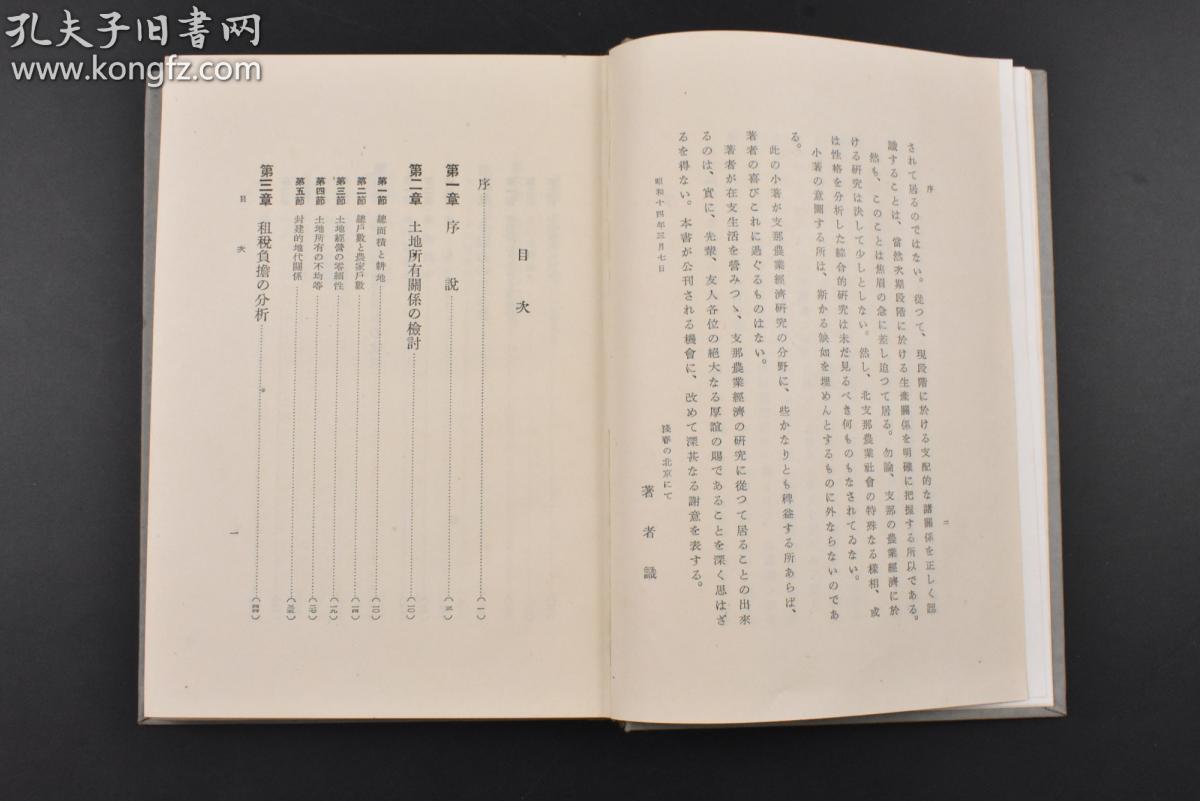 孔夫子旧书网
www.kongfz.com
序
二
されて居るのではない。従つて、現段階に於ける支配的な諸關係を正しく認
識することは、當然次期段階に於ける生產關係を明確に把握する所以である。
然も、このことは焦眉の念に差し迫つて居る。勿論、支那の農業經濟に於
ける研究は決して少しとしない。然し、北支那農業社會の特殊なる樣相、或
は性格を分析した綜合的研究は未だ見るべき何ものもなされてゐない。
小著の意圖する所は、斯かる缺如を埋めんとするものに外ならないのであ
る。
此の小著が支那農業經濟研究の分野に、些かなりとも稗益する所あらば、
著者の喜びこれに過ぐるものはない。
著者が在支生活を營みつゝ、支那農業經濟の研究に從つて居ることの出來
るのは、實に、先輩、友人各位の絕大なる厚誼の賜であることを深く思はざ
るを得ない。本書が公刊される機會に、改めて深甚なる謝意を表する。
昭和十四年三月七日
淺春の北京にて
著者識
目次
序……(一)
第一章 序說……(三)
第二章 土地所有關係の檢討……(一〇)
第一節 總面積と耕地……(一〇)
第二節 總戶數と農家戶數……(一四)
第三節 土地經營の零細性……(一九)
第四節 土地所有の不均等……
第五節 封建的地代關係……
第三章 租稅負擔の分析……
目次
一